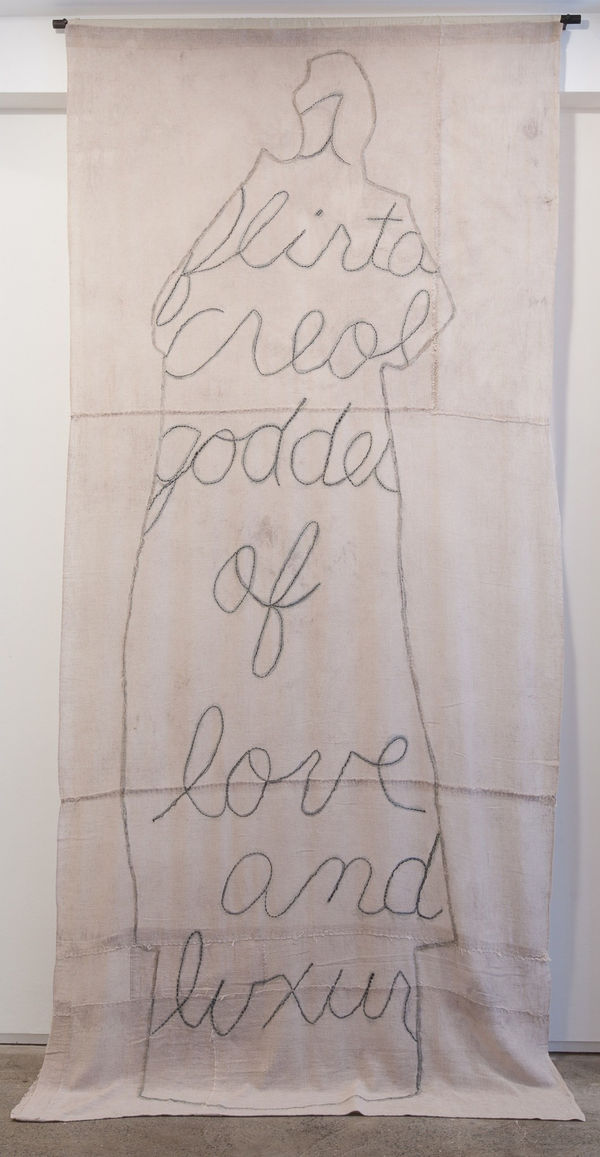 a
flirta
creol
goddes
of
love
and
luxur